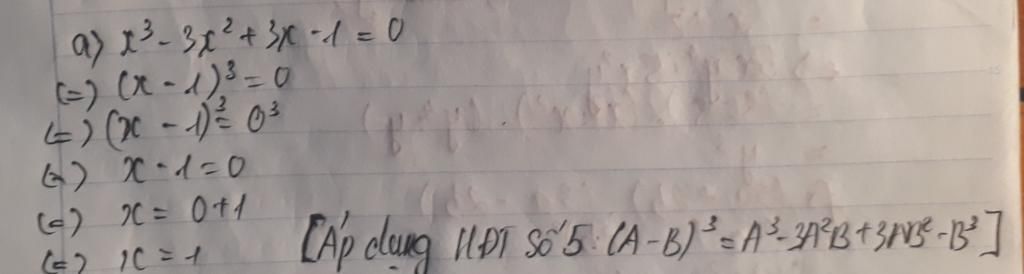 a) x³ - 3x² + 3x - 1 = 0
(=) (x - 1)³ = 0
(=) (x - 1)³ = 0³
(=) x - 1 = 0
(=) x = 0 + 1
(=) x = 1 [Áp dụng HĐT Số 5: (A - B)³ = A³ - 3A²B + 3AB² - B³]